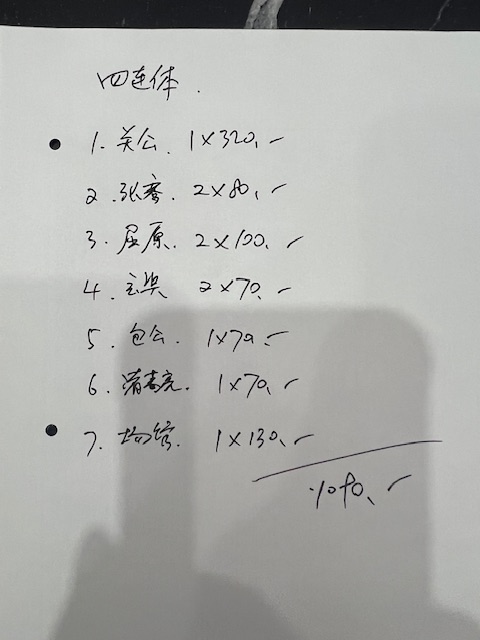 四连体.
1. 关公. 1×320.-
2. 张骞. 2×80.-
3. 屈原. 2×100.-
4. 2×70.-
5. 包公. 1×70.-
6. 诸葛亮. 1×70.-
7. 场馆. 1×130.-
1090.-